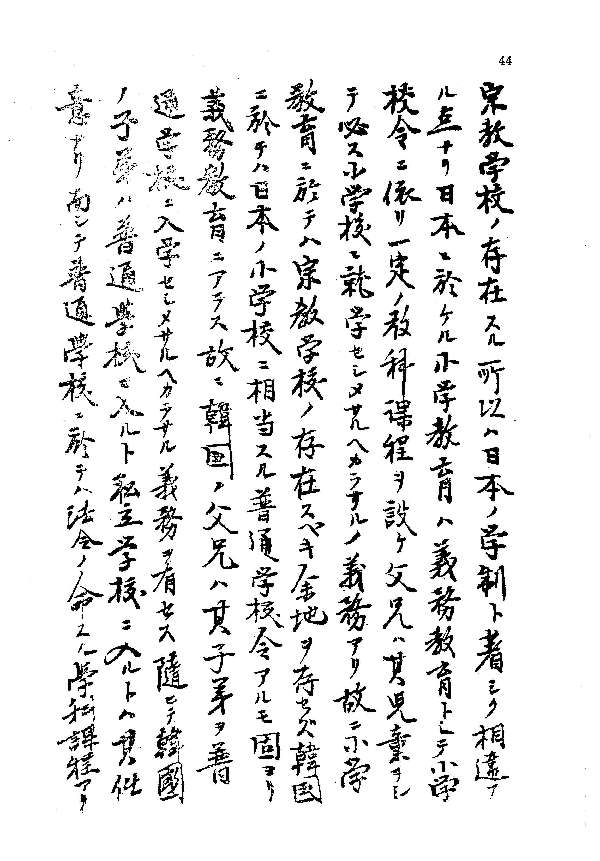 44
宗教学校ノ存在スル所以ハ日本ノ学制ト著シク相違ス
ル点ナリ日本ニ於ケル小学教育ハ義務教育トシテ小学
校令ニ依リ一定ノ教科課程ヲ設ケ父兄ハ其児童ヲシ
テ必ス小学校ニ就学セシメサルヘカラサルノ義務アリ故ニ小学
教育ニ於テハ宗教学校ノ存在スベキ余地ヲ存セズ韓国
ニ於テハ日本ノ小学校ニ相当スル普通学校令アルモ固ヨリ
義務教育ニアラス故ニ韓国ノ父兄ハ其子弟ヲ普
通学校ニ入学セシメサルヘカラサル義務ヲ有セス随ヒテ韓國
ノ子弟ハ普通學校ニ入ルト私立学校ニ入ルトハ其任
意ナリ而シテ普通學校ニ於テハ法令ノ命スル學科課程アリ